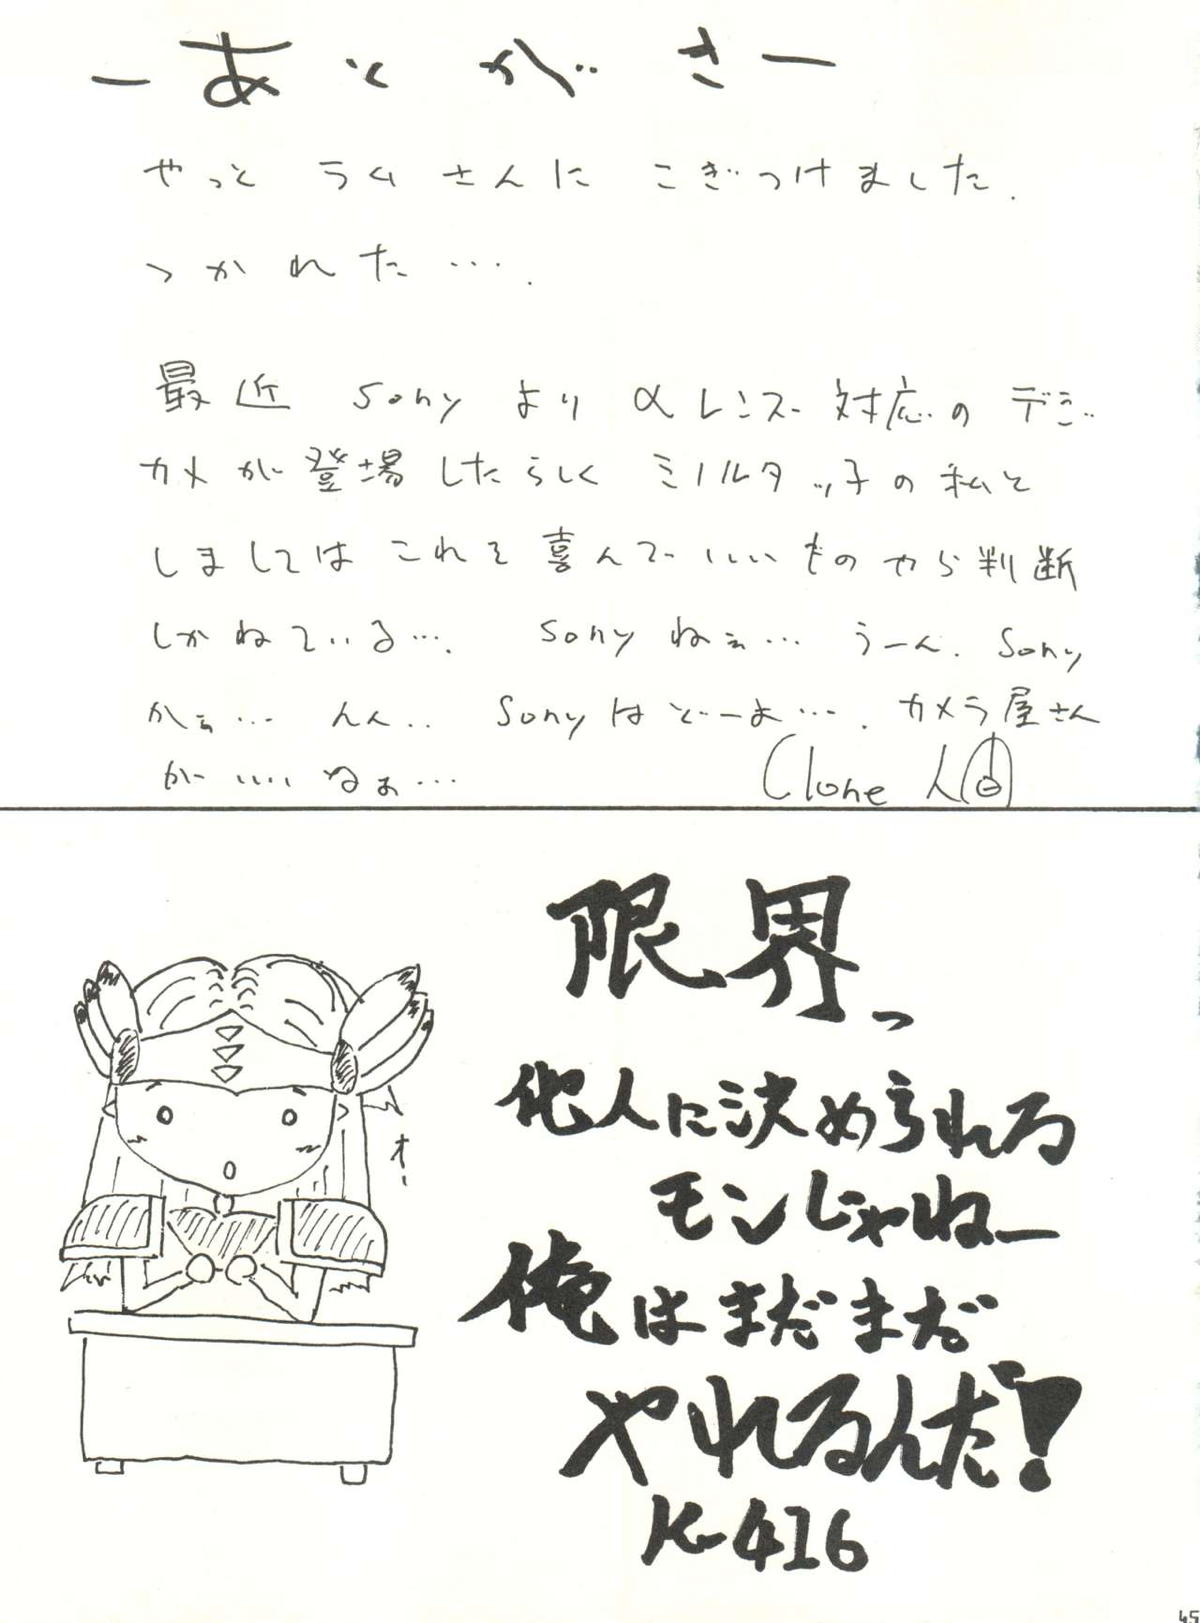 ーあとがきー
やっと ラムさんに こぎつけました.
つかれた….
最近 Sony より αレンズ 対応の デジ
カメが 登場したらしく ミノルタッ子の 私と
しましては これを 喜んで いいものやら 判断
しかねている…. Sony ねぇ… うーん. Sony
かぁ… んん.. Sony は どーよ…. カメラ屋さん
が いいねぇ…
Clone 人間
限界っ
他人に決められる
モンじゃねー
オー
俺はまだまだ
やれるんだ!
K-416
65